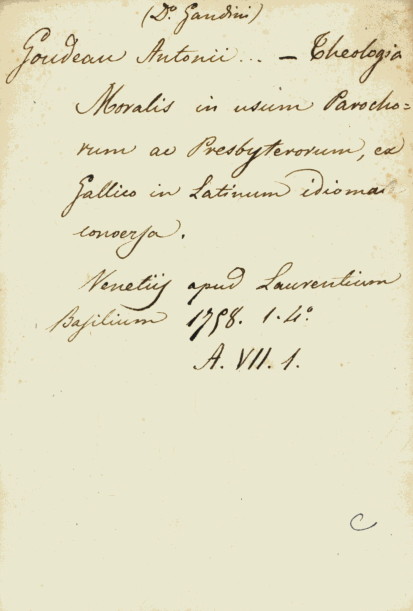 (Do. Gandini)
Goudeau Antonii... — Theologia
Moralis in usum Parocho=
rum ac Presbyterorum, ex
Gallico in Latinum idioma
conversa.
Venetiis apud Laurentium
Basilium 1758. 1. 4o
A. VII. 1.
C